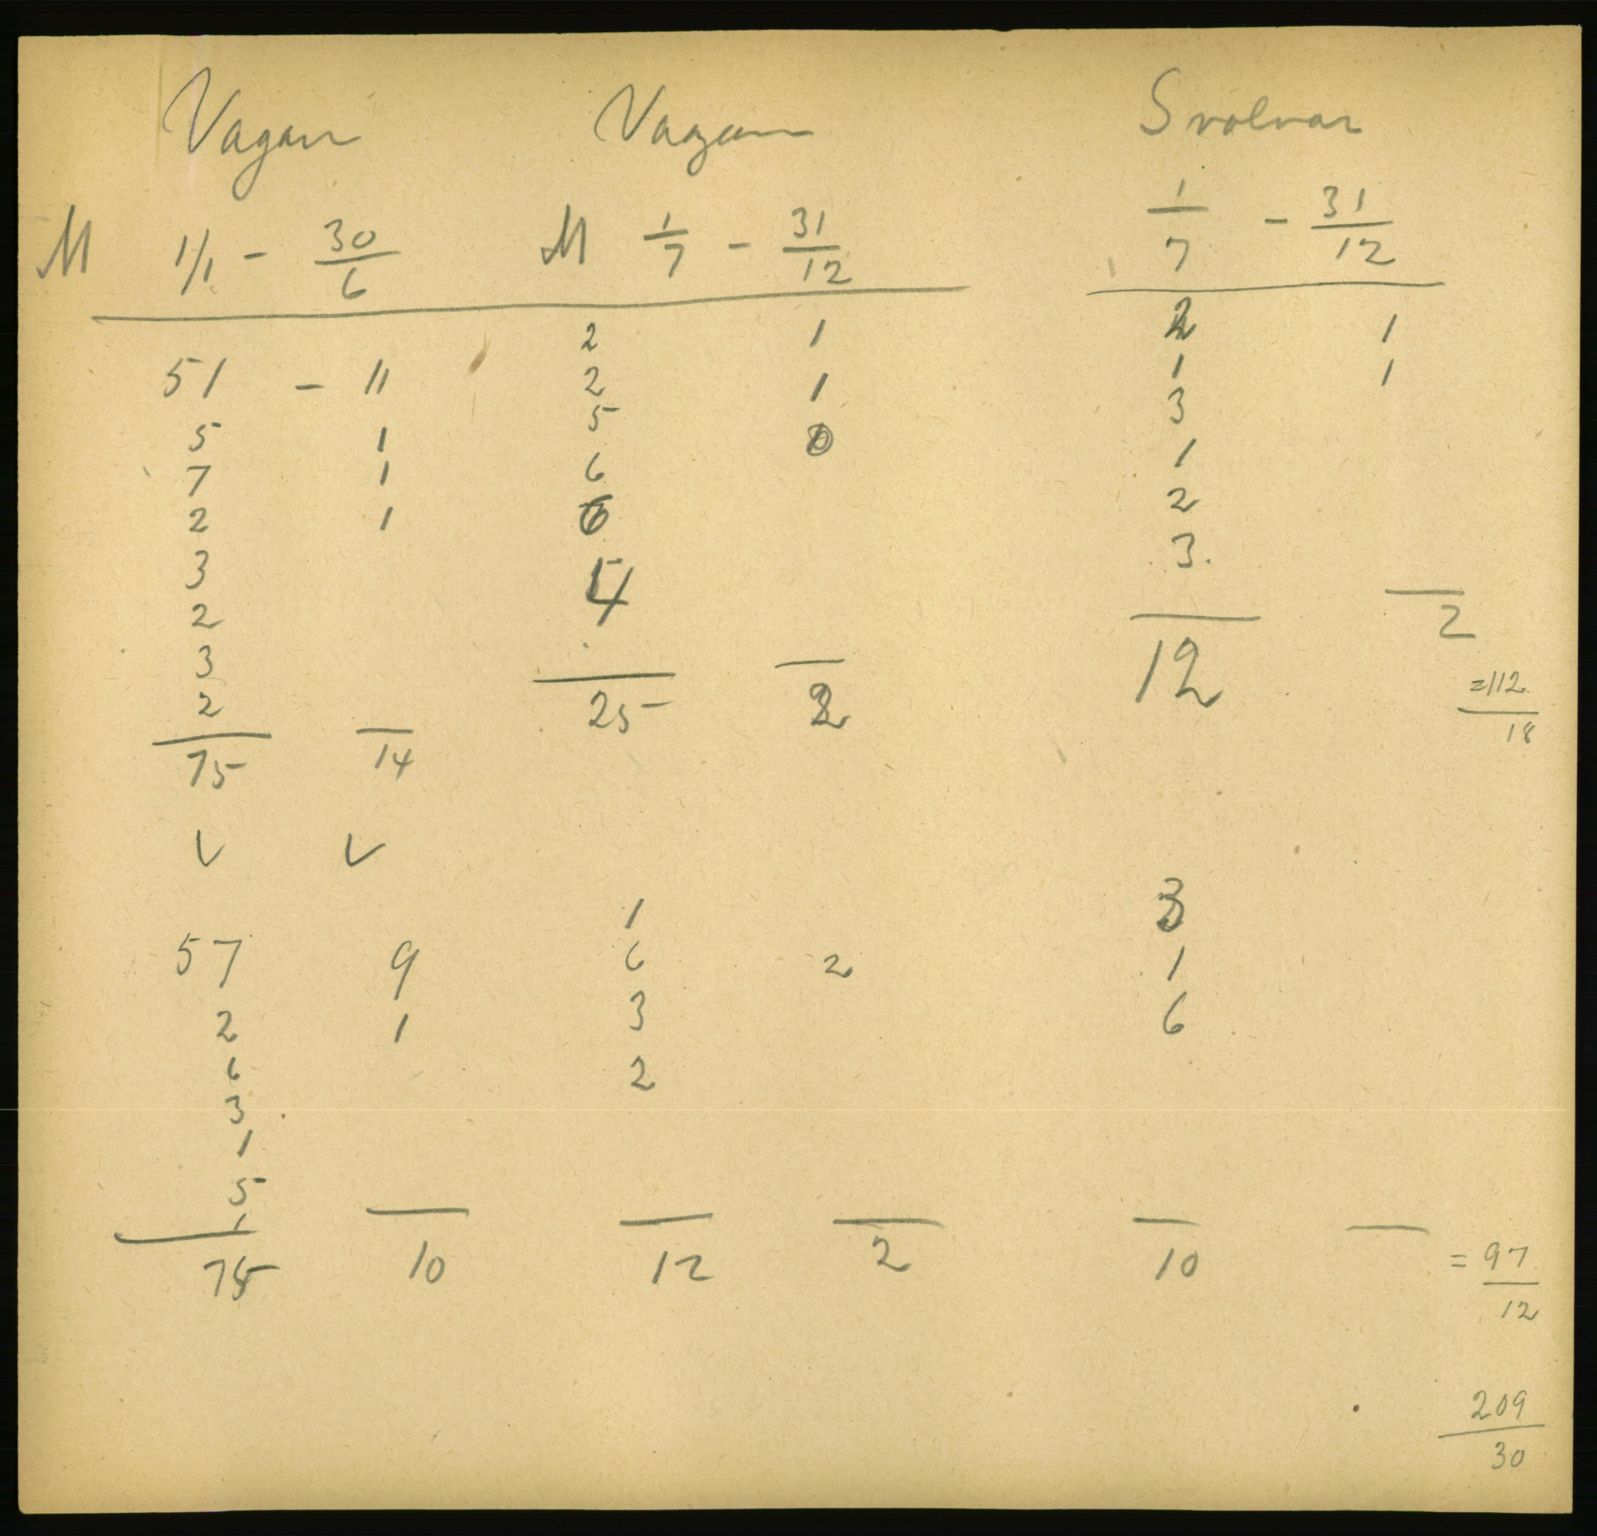 Vagan Vagan Svolvar
M 1/1 - 30/6 M 1/7 - 31/12 1/7 - 31/12
2 1 2 1
51 - 11 2 1 1 1
5 3
5 1
7 1 6 1
2 1 6 2
3 4 3.
2 12 2
3
2 25 2 =112/18
75 14
V V
1 3
57 9 6 2 1
2 1 3 6
6 2
3
1
5
1
75 10 12 2 10 = 97/12
209/30